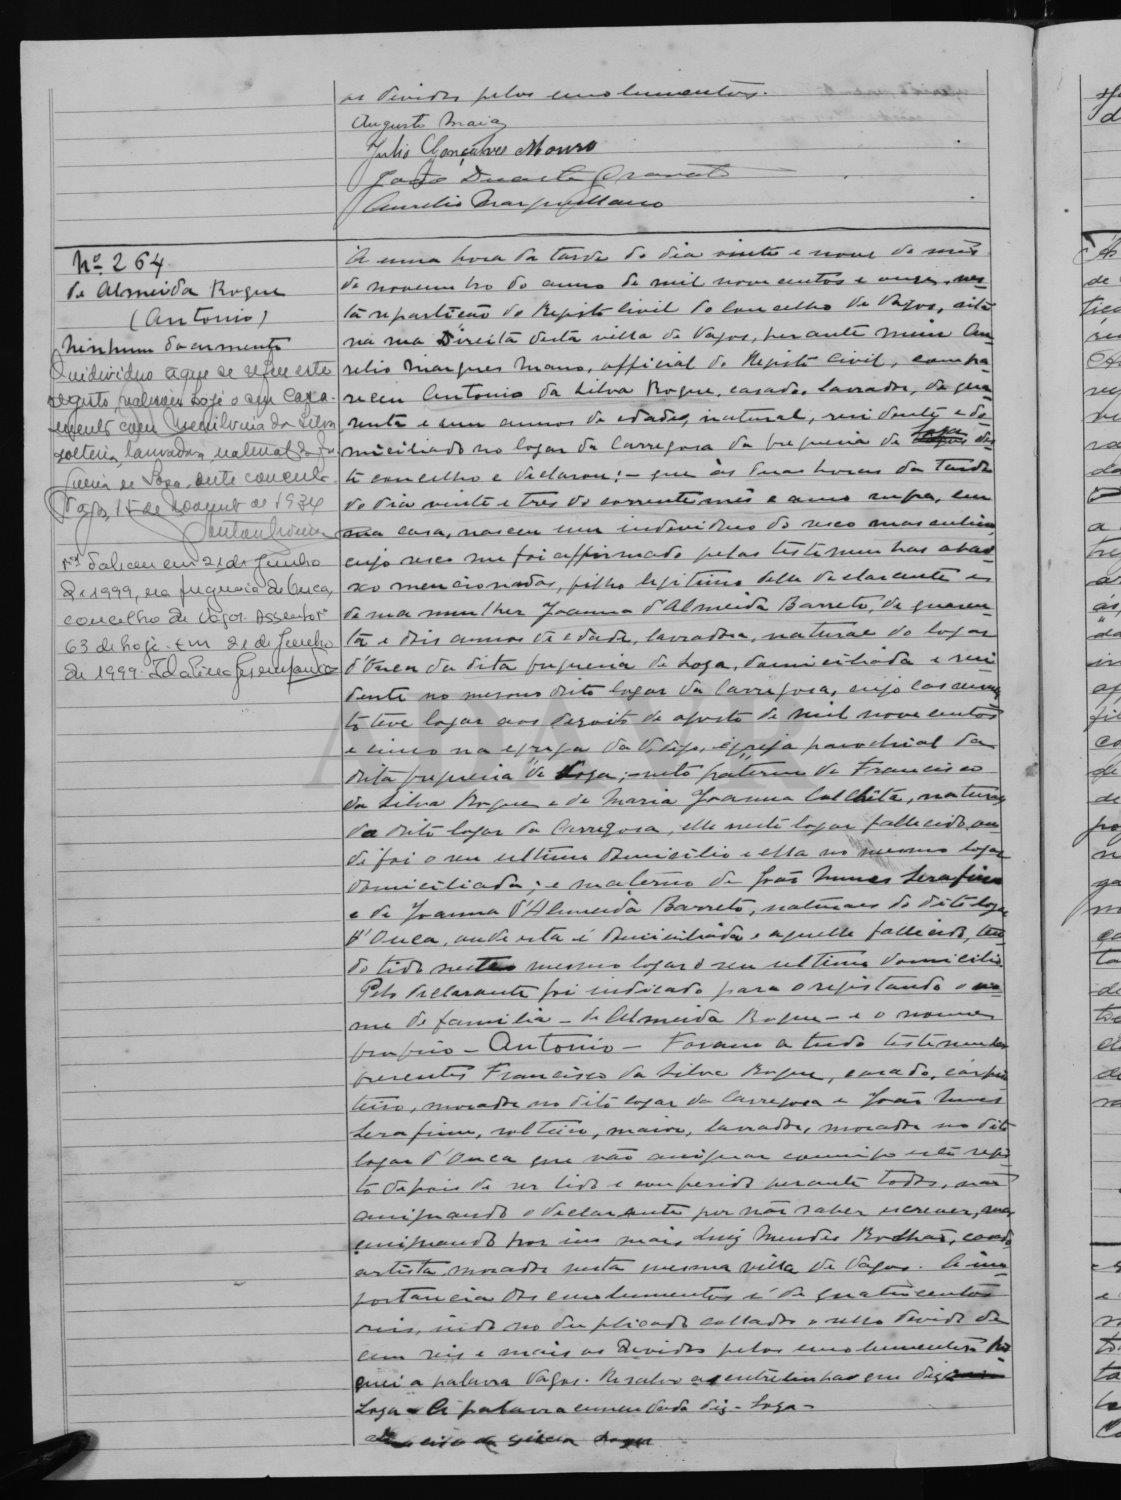 os devidos pelos emolumentos.
Augusto Maia
Julio Gonçalves Mouro
João Duarte Gravato
Aurelio Marques Mano
Nº 264
de Almeida Roque
(Antonio)
Nenhum documento
O individuo a que se refere este
registo, realisou hoje o seu casa-
mento com da Silva
solteira, lavradora, natural da fre-
guesia de Soza, deste concelho.
Vagos, 15 de de 1934
Nº1 Faleceu em 21 de Junho
de 1999, na freguesia de Ouca,
concelho de Vagos. Assento nº
63 de hoje. Em 21 de Junho
de 1999.
Á uma hora da tarde do dia vinte e nove do mês
de novembro do anno de mil novecentos e onze, nes-
ta repartição do Registo Civil do concelho de Vagos, sita
na rua Direita desta villa de Vagos, perante mim Au-
relio Marques Mano, official do Registo Civil, compa-
receu Antonio da Silva Roque, casado, lavrador, de qua-
renta e um annos de edade, natural, residente e do-
miciliado no logar da Carregosa da freguesia de Soza des-
te concelho e declarou: - que ás duas horas da tarde
do dia vinte e tres do corrente mês e anno supra, em
sua casa, nasceu um individuo do sexo masculino,
cujo sexo me foi affirmado pelas testemunhas abai-
xo mencionadas, filho legitimo delle declarante e
de sua mulher Joanna d'Almeida Barreto, de quaren-
ta e dois annos de edade, lavradora, natural do logar
d'Ouca da dita freguesia de Soza, domiciliada e resi
dente no mesmo dito logar da Carregosa, cujo casamen-
to teve logar aos dezoito de agosto de mil novecentos
e cinco na egreja parochial da
dita freguesia de Soza; - neto paterno de Francisco
da Silva Roque e de Maria Joanna, naturaes
do dito logar da Carregosa, elle neste logar fallecido, on-
de foi o seu ultimo domicilio e ella no mesmo logar
domiciliada; e materno de João Nunes Serafim
e de Joanna d'Almeida Barreto, naturaes do dito logar
d'Ouca, onde esta é domiciliada e aquelle fallecido, ten-
do tido neste mesmo logar o seu ultimo domicilio.
Pelo declarante foi indicado para o registando o no-
me de familia - de Almeida Roque - e o nome
proprio - Antonio - Foram a tudo testemunhas
presentes Francisco da Silva Roque, casado, carpin
teiro, morador no dito logar da Carregosa e João Nunes
Serafim, solteiro, maior, lavrador, morador no dito
logar d'Ouca que vão assignar commigo este regis-
to depois de ser lido e conferido perante todos, não
assignando o declarante por não saber escrever, mas
assignando por si mais Luiz Mendes, casado,
artista, morador nesta mesma villa de Vagos. A im-
portancia dos emolumentos é de quatrocentos
reis, indo no duplicado collado o sello devido de
cem reis e mais os devidos pelos emolumentos. Ris-
quei a palavra Vagos. Resalvo a entrelinha que diz
Soza - A palavra emendada diz - Soza -